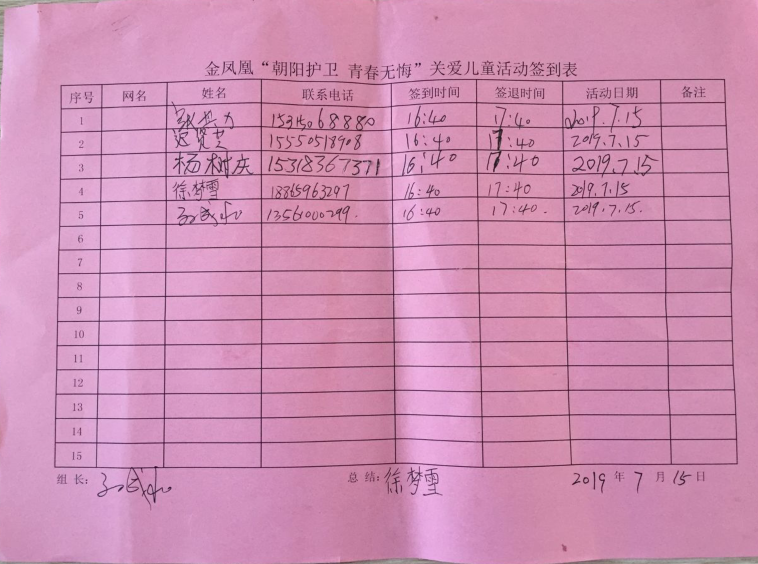 金凤凰“朝阳护卫 青春无悔”关爱儿童活动签到表
序号 网名 姓名 联系电话 签到时间 签退时间 活动日期 备注
1 16:40 17:40 2019.7.15
2 15550518908 16:40 17:40 2019.7.15
3 杨树庆 15318367371 16:40 17:40 2019.7.15
4 徐梦雪 16:40 17:40 2019.7.15
5 13561000299. 16:40 17:40. 2019.7.15.
6
7
8
9
10
11
12
13
14
15
组 长: 总 结: 徐梦雪 2019 年 7 月 15 日